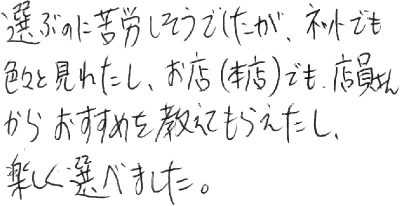 選ぶのに苦労しそうでしたが、ネットでも
色々と見れたし、お店(本店)でも、店員さん
からおすすめを教えてもらえたし、
楽しく選べました。